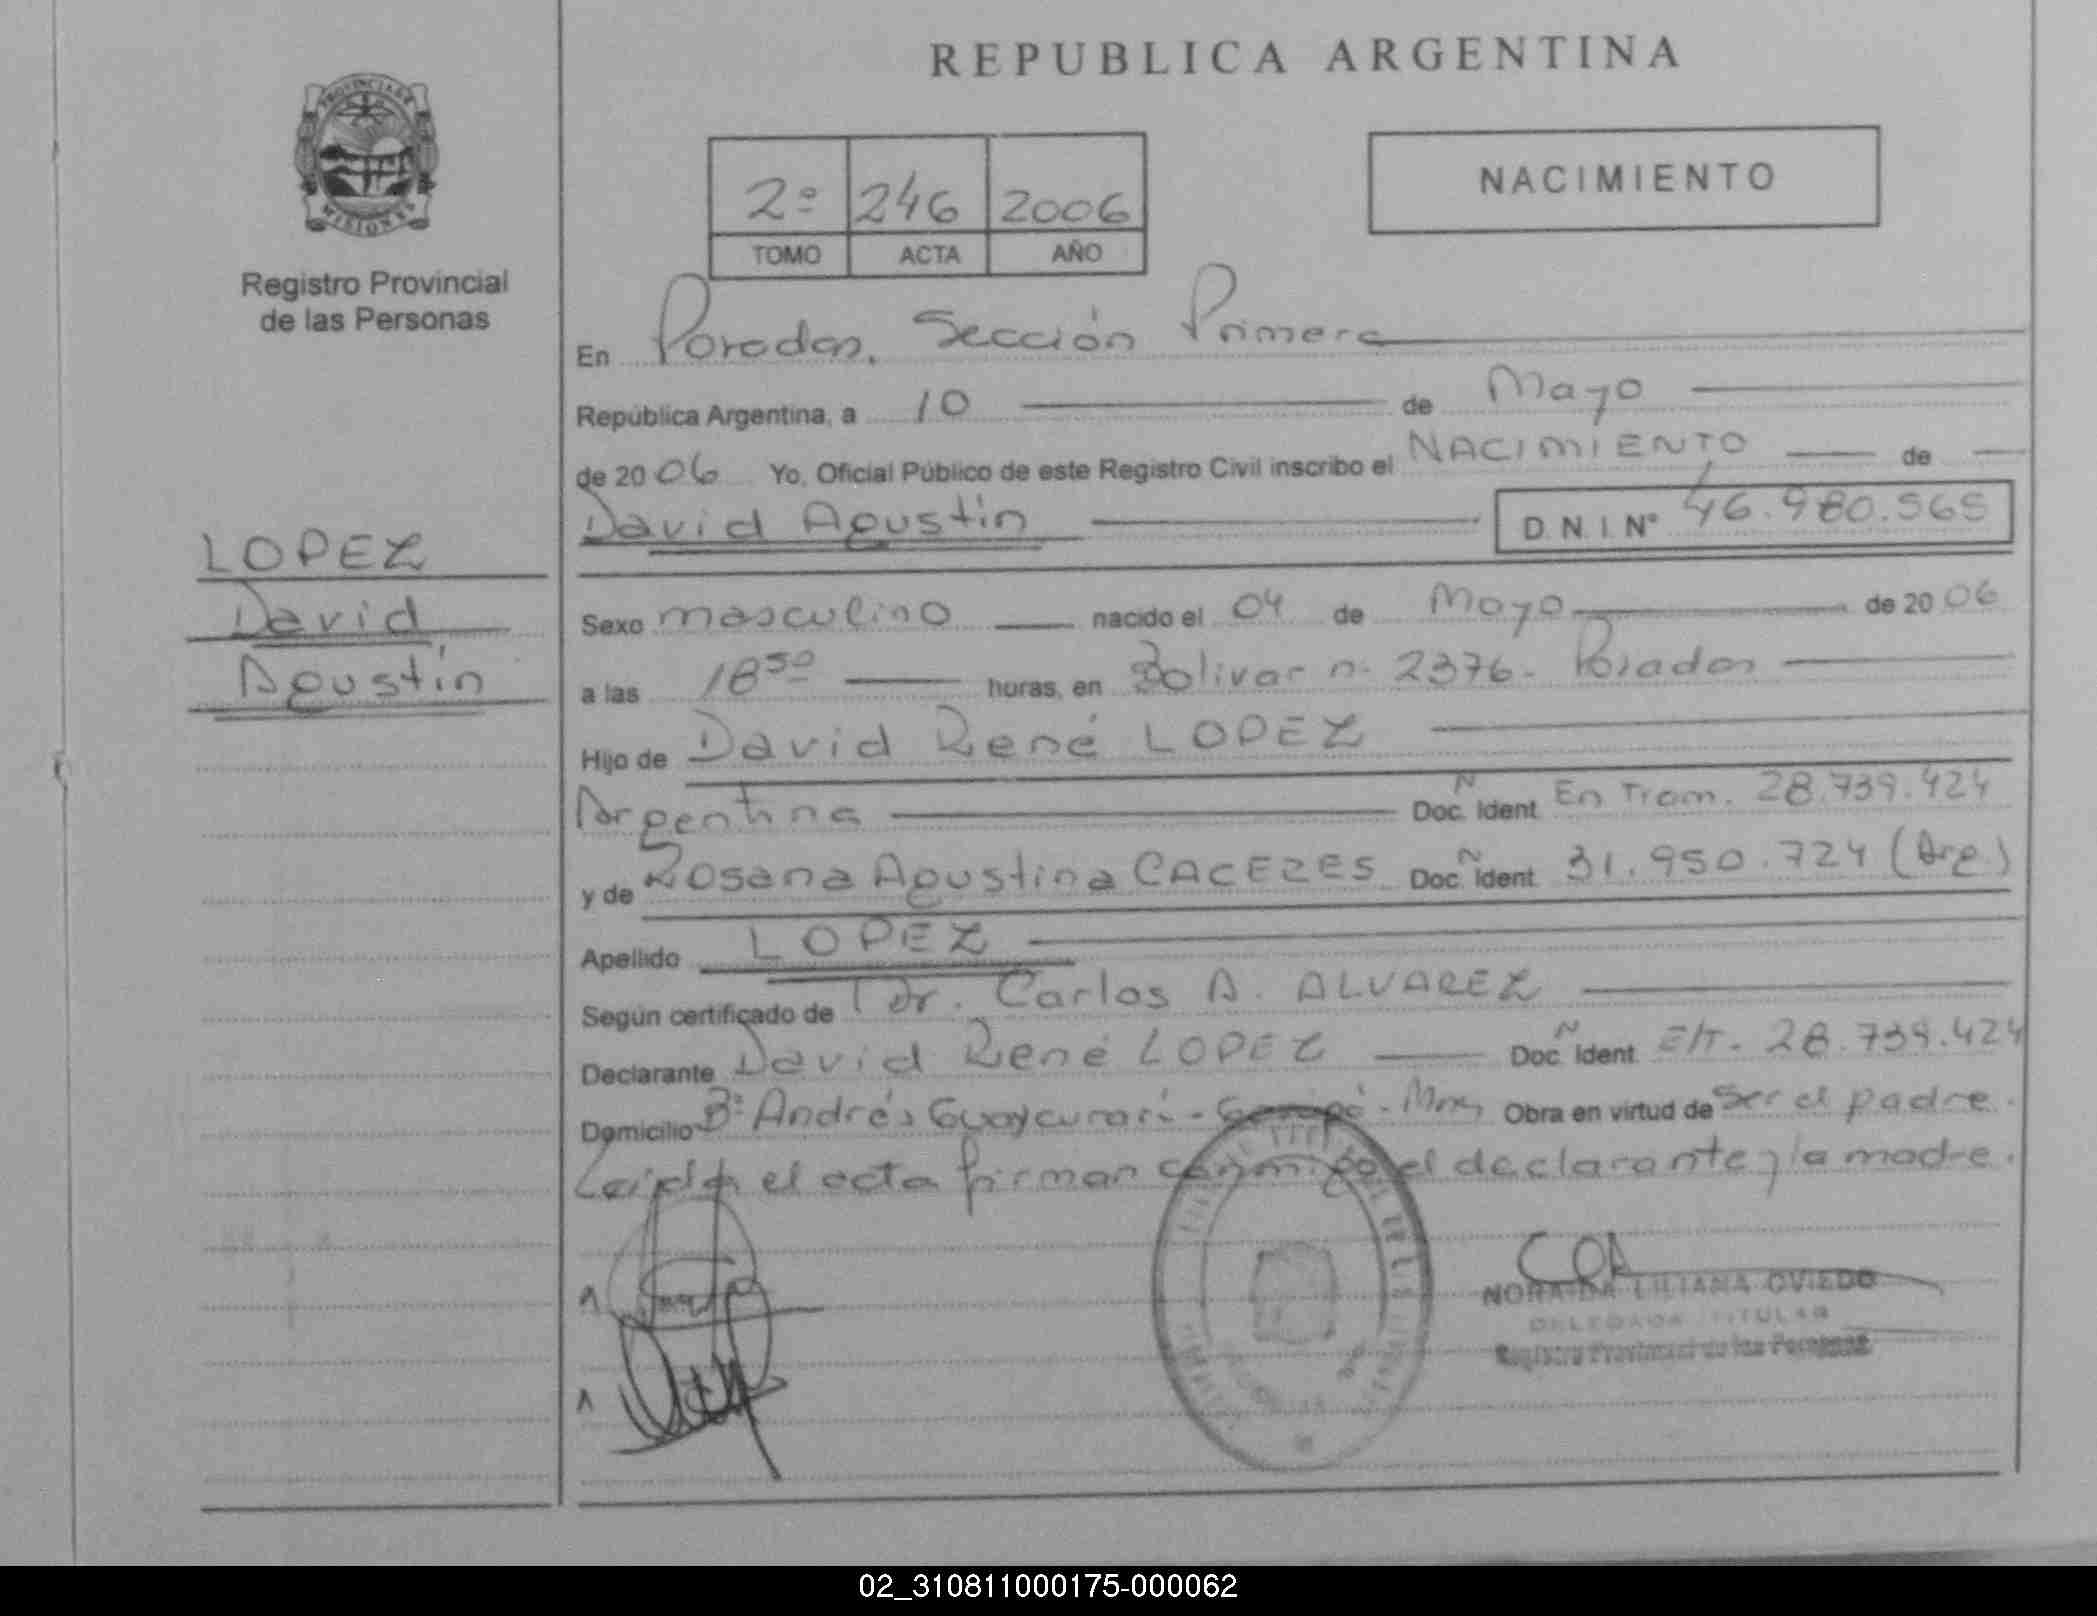 REPUBLICA ARGENTINA
PROVINCIA DE
MISIONES
Registro Provincial
de las Personas
2º 246 2006
TOMO ACTA AÑO
NACIMIENTO
En Posadas, Sección Primera
República Argentina, a 10 de Mayo
de 2006 Yo, Oficial Público de este Registro Civil inscribo el NACIMIENTO de
David Agustín D.N.I. Nº 46.980.565
LOPEZ
David
Agustín
Sexo masculino nacido el 04 de Mayo de 2006
a las 18 50 horas, en Bolivar n. 2376 - Posadas
Hijo de David René LOPEZ
Argentina Doc. Ident. En Tram. 28.739.424
y de Rosana Agustina CACERES Doc. Ident. 31.950.724 (Arg.)
Apellido LOPEZ
Según certificado de Dr. Carlos A. ALVAREZ
Declarante David René LOPEZ Doc. Ident. E/T. 28.739.424
Domicilio Bº Andrés Guaycurarí - Garupá - Mnes Obra en virtud de ser el padre.
Leída el acta firman conmigo el declarante y la madre.
LILIANA OVIEDO
DELEGADA TITULAR
Registro Provincial de las Personas
02_310811000175-000062